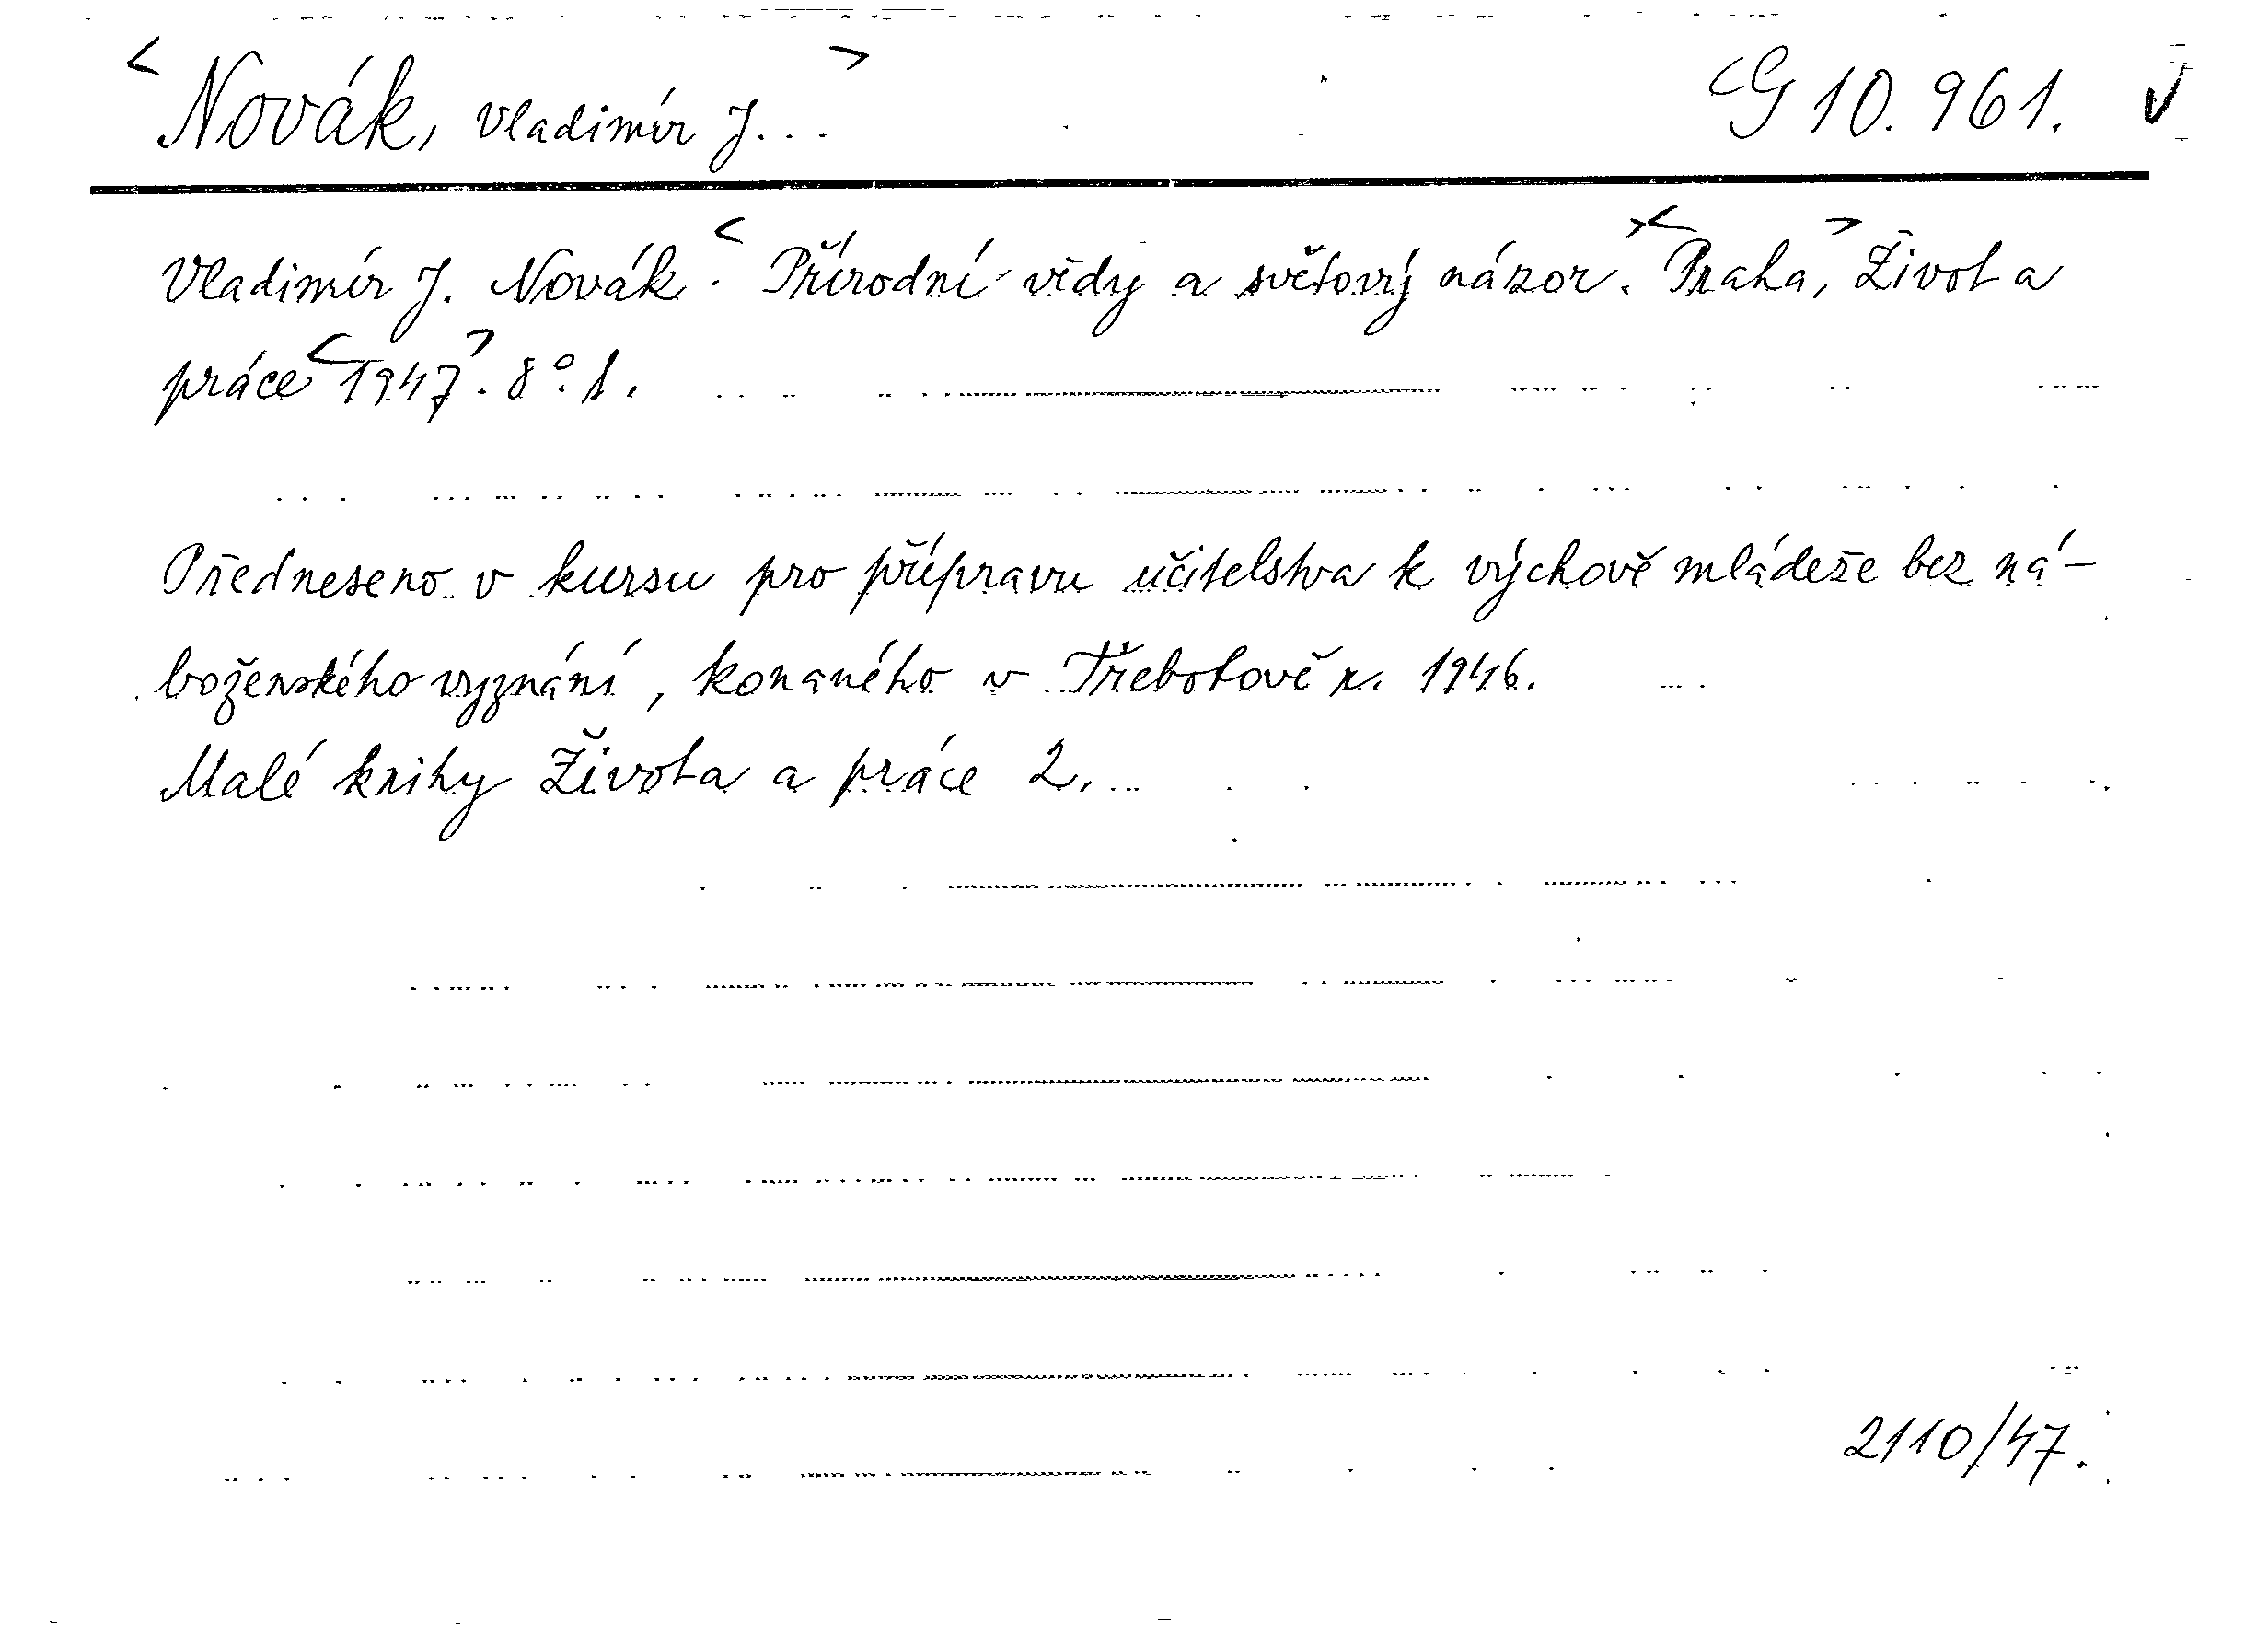 < Novák, Vladimír J... > G 10.961. √
Vladimír J. Novák. < Přírodní vědy a světový názor. >< Praha, > Život a
práce < 1947 >. 8°. 1.
Předneseno v kursu pro přípravu učitelstva k výchově mládeže bez ná-
boženského vyznání, konaného v Třebotově r. 1946.
Malé knihy Života a práce 2.
2110/47.